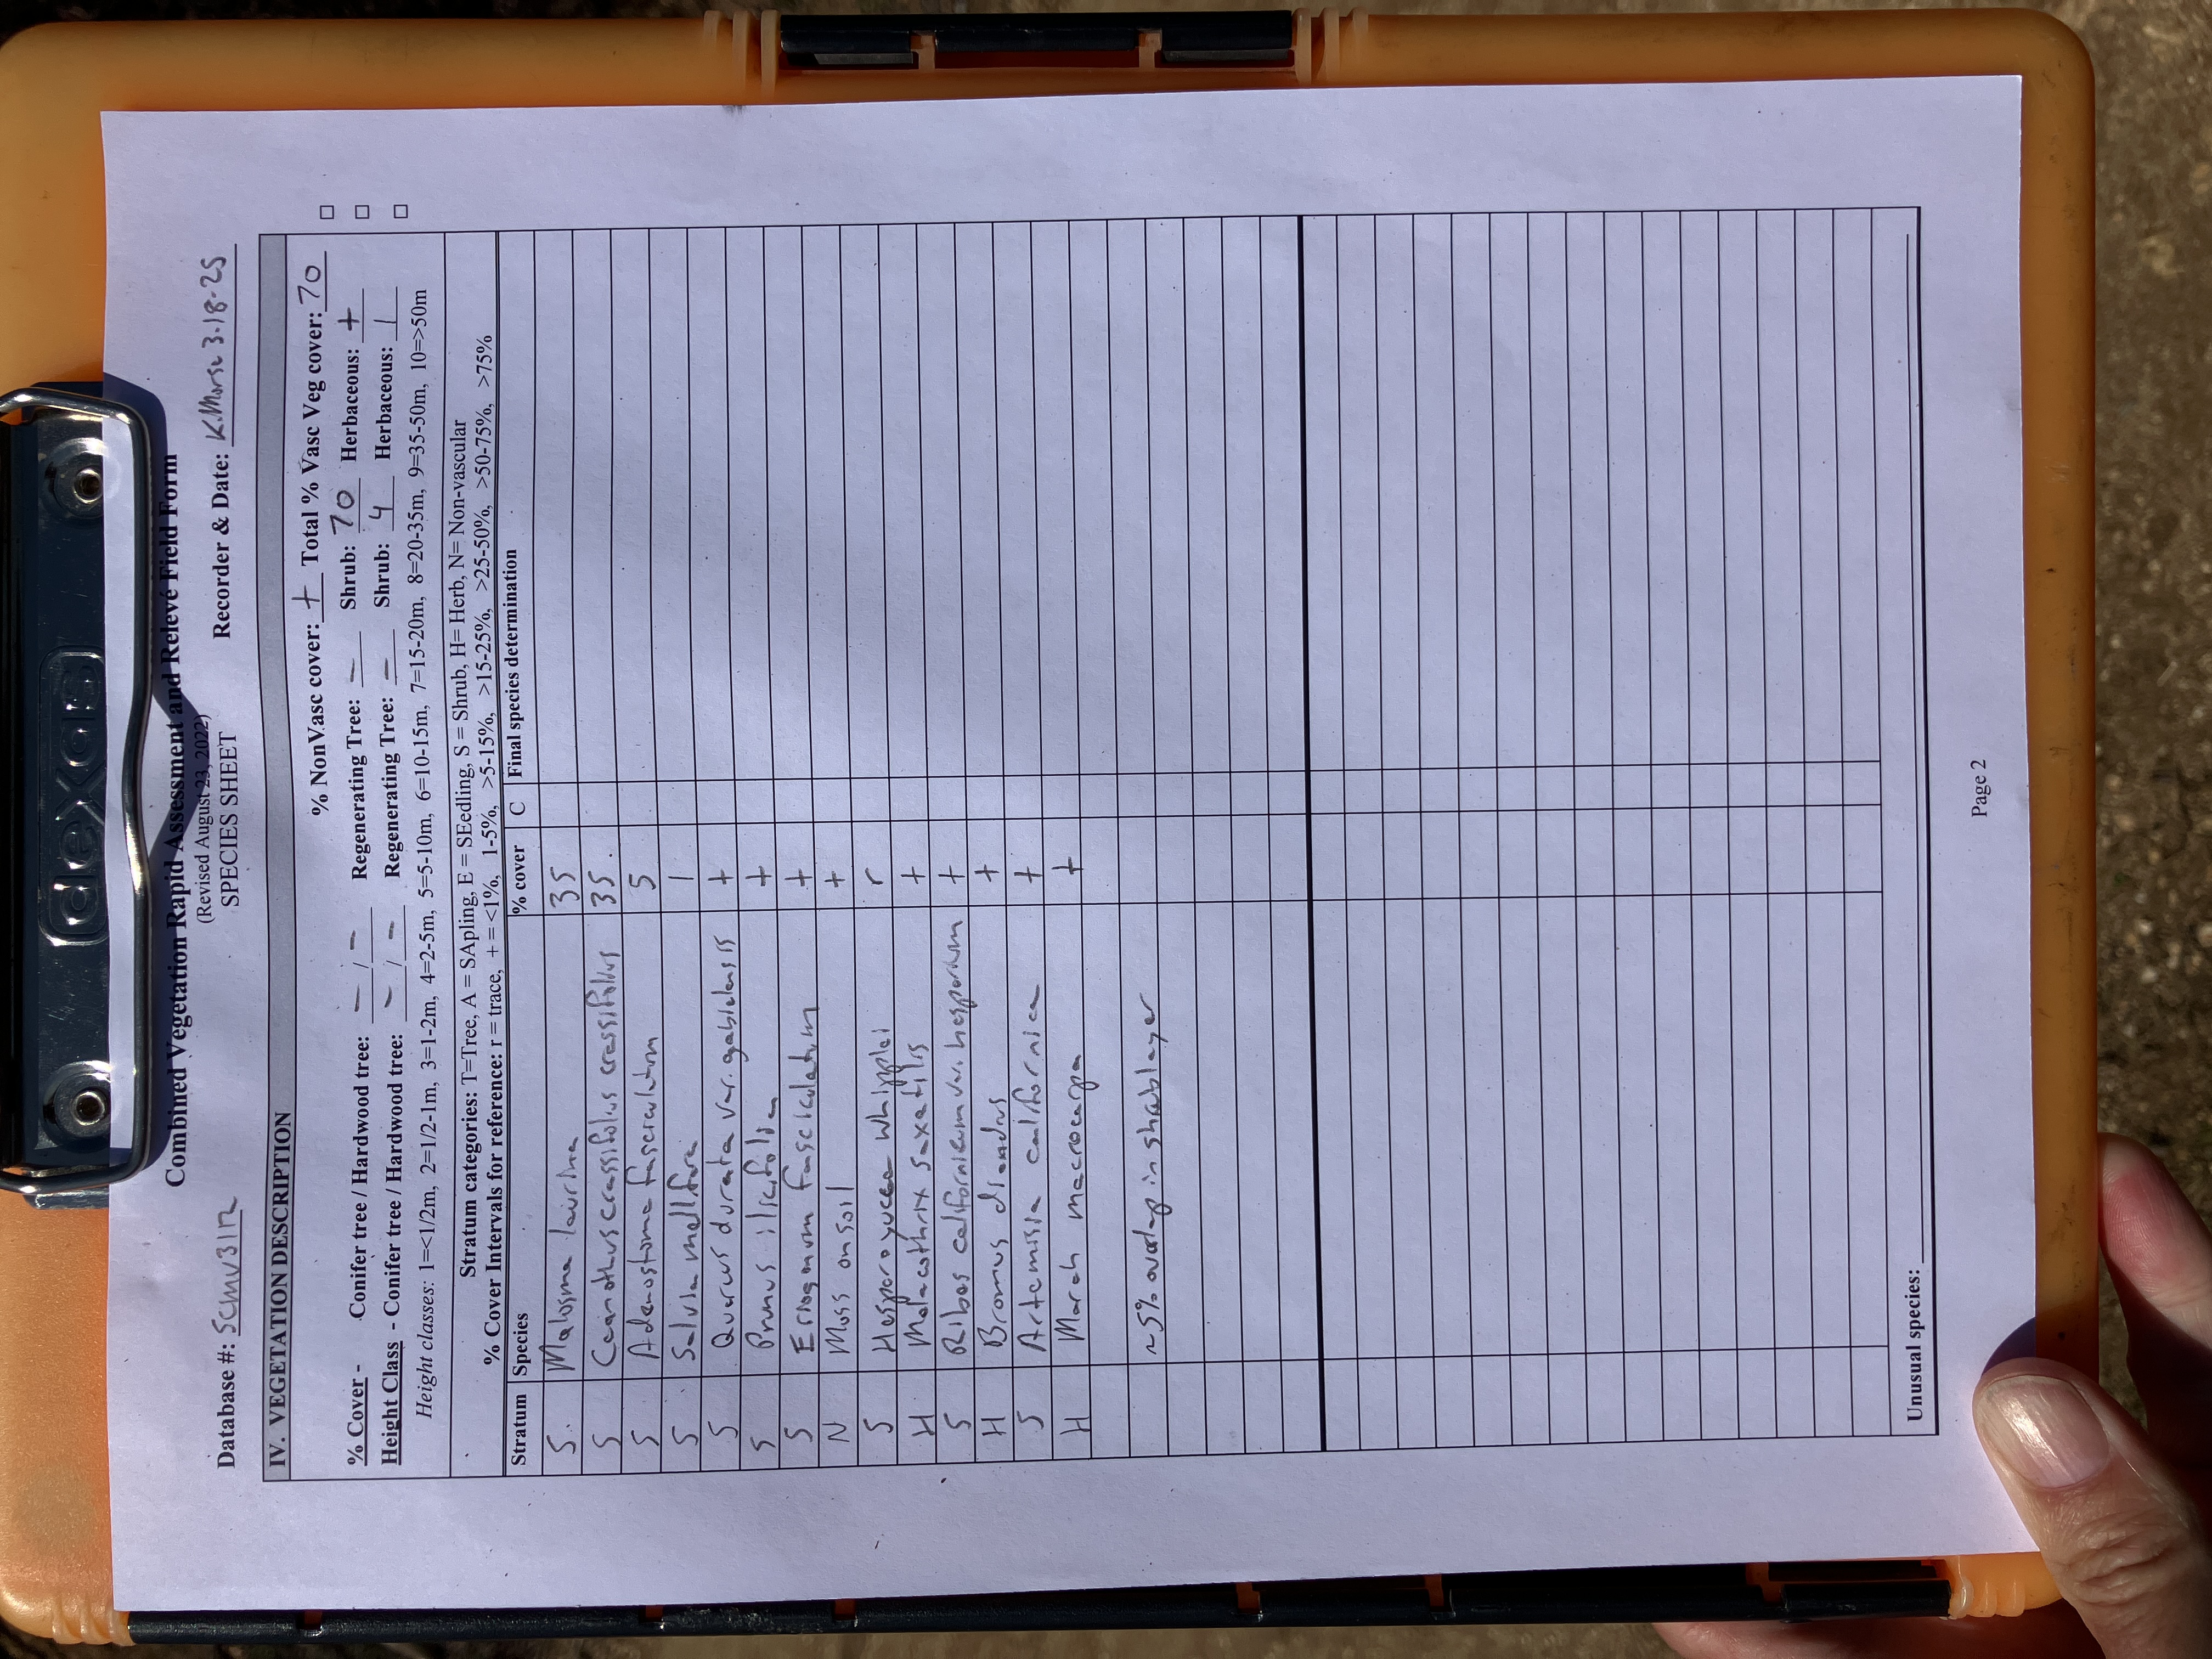 dexas
Combined Vegetation Rapid Assessment and Relevé Field Form
(Revised August 23, 2022)
SPECIES SHEET
Database #: SCMV312 Recorder & Date: K.Morse 3-18-25
IV. VEGETATION DESCRIPTION
% NonVasc cover: + Total % Vasc Veg cover: 70
% Cover - Conifer tree / Hardwood tree: — / — Regenerating Tree: — Shrub: 70 Herbaceous: +
Height Class - Conifer tree / Hardwood tree: — / — Regenerating Tree: — Shrub: 4 Herbaceous: 1
Height classes: 1=<1/2m, 2=1/2-1m, 3=1-2m, 4=2-5m, 5=5-10m, 6=10-15m, 7=15-20m, 8=20-35m, 9=35-50m, 10=>50m
Stratum categories: T=Tree, A = SApling, E = SEedling, S = Shrub, H= Herb, N= Non-vascular
% Cover Intervals for reference: r = trace, + = <1%, 1-5%, >5-15%, >15-25%, >25-50%, >50-75%, >75%
Stratum Species % cover C Final species determination
S Malosma laurina 35
S Ceanothus crassifolius crassifolius 35
S Adenostoma fasciculatum 5
S Salvia mellifera 1
S Quercus durata var. gabrielensis +
S Prunus ilicifolia +
S Eriogonum fasciculatum +
N Moss on soil +
S Hesperoyucca whipplei r
H Malacothrix saxatilis +
S Ribes californicum var. hesperium +
H Bromus diandrus +
S Artemisia californica +
H Marah macrocarpa +
~5% overlap in shrub layer
Unusual species:
Page 2